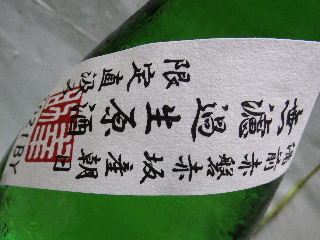 備前赤磐赤坂産朝日
無濾過生原酒
限定直汲
21BY